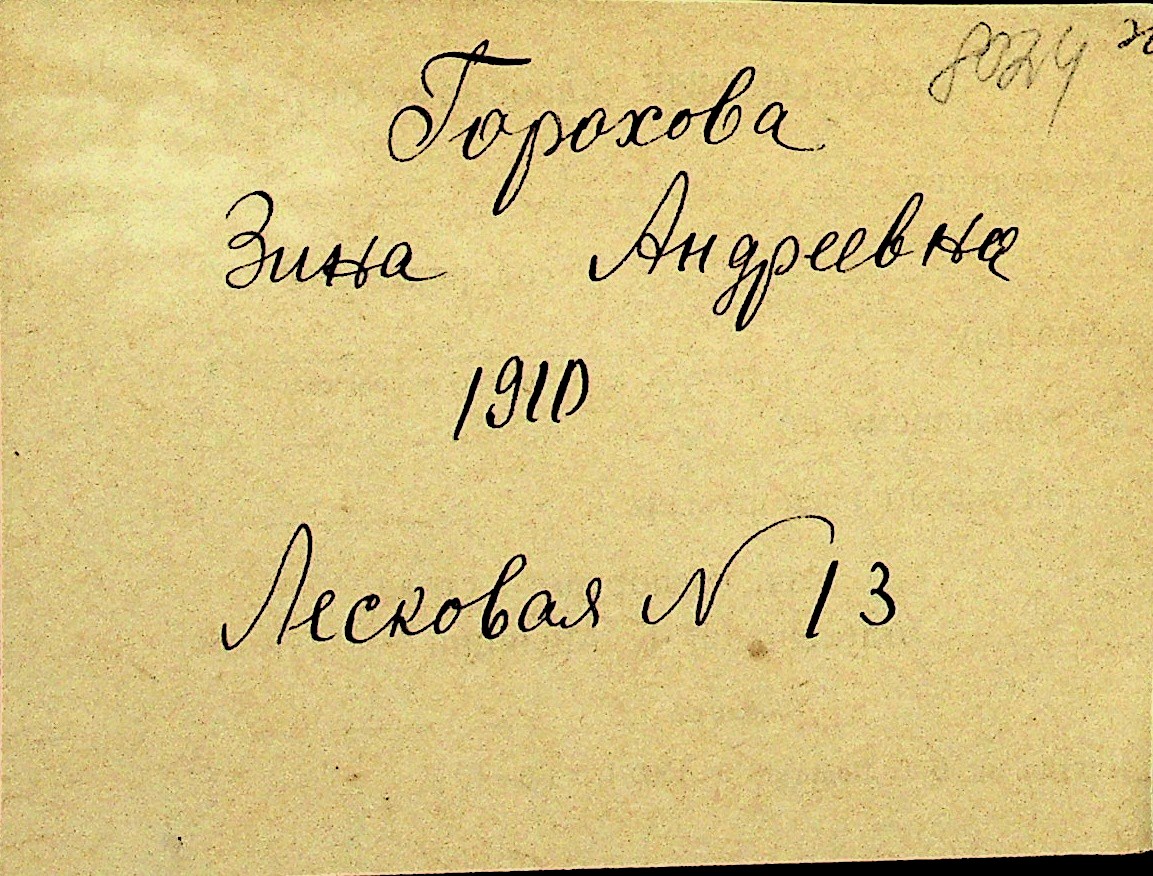 8024
Горохова
Зина Андреевна
1910
Лесковая N 13